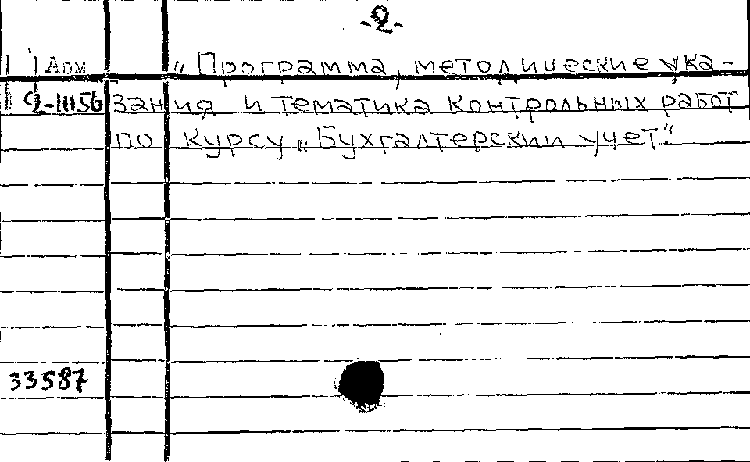 -2-
Арм „Программа, методические ука-
2-11156 зания и тематика контрольных работ
по курсу „Бухгалтерский учет".
33587